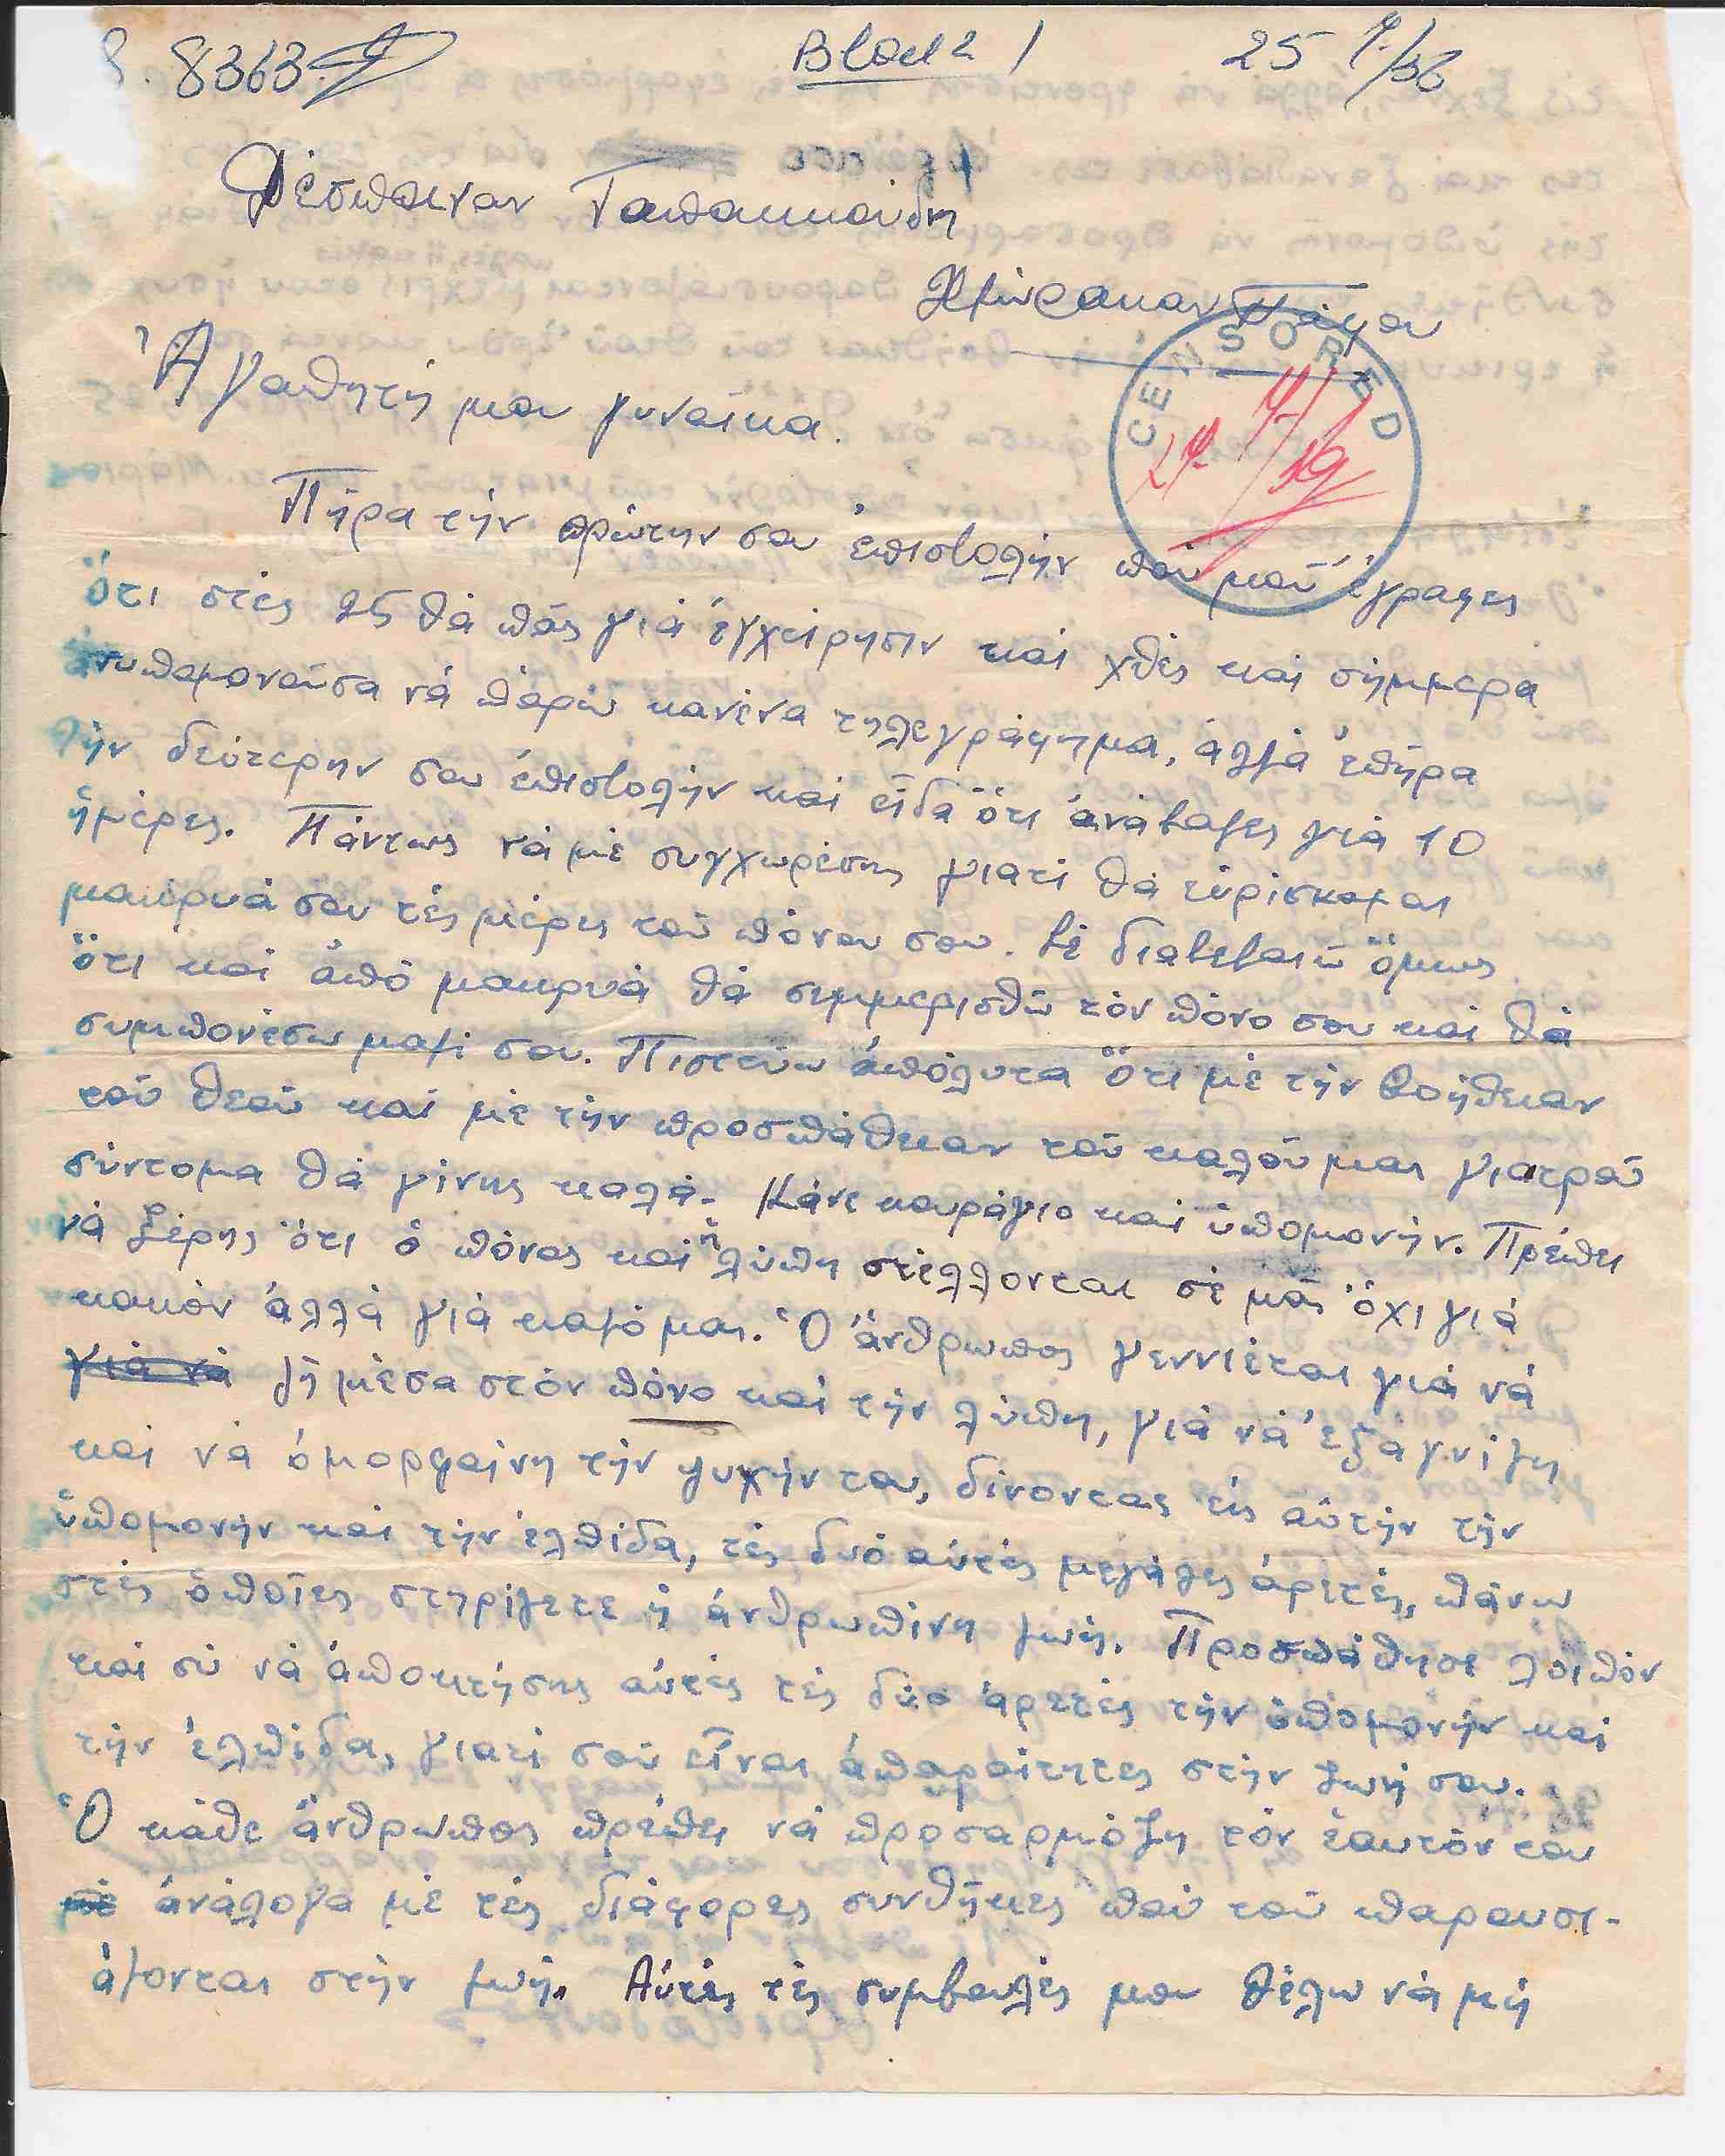 8363
Block 2 / 25 9/56
Δέσποιναν Παπακκούδη
Χλώρακαν Πάφου
CENSORED
27 9/56
Ἀγαπητή μου γυναίκα.
Πῆρα τήν πρώτην σου ἐπιστολήν πού μοῦ ἔγραφες
ὅτι στές 25 θά πᾶς γιά ἐγχείρησιν καί χθές καί σήμμερα
ἀνυπομονοῦσα νά πάρω κανένα τηλεγράφημα, ἀλλά ἐπῆρα
τήν δεύτερην σου ἐπιστολήν καί εἶδα ὅτι ἀνάβαλες γιά 10
ἡμέρες. Πάντως νά μέ συγχωρέσης γιατί θά εὑρίσκομαι
μακρυά σου τές μέρες τοῦ πόνου σου. Σέ διαβεβαιῶ ὅμως
ὅτι καί ἀπό μακρυά θά συμμερισθῶ τόν πόνο σου καί θά
συμπονέσω μαζί σου. Πιστεύω ἀπόλυτα ὅτι μέ τήν βοήθειαν
τοῦ Θεοῦ καί μέ τήν προσπάθειαν τοῦ καλοῦ μας γιατροῦ
σύντομα θά γίνης καλά. Κάνε κουράγιο καί ὑπομονήν. Πρέπει
νά ξέρης ὅτι ὁ πόνος καί ἡ λύπη στέλλονται σέ μᾶς ὄχι γιά
κακόν ἀλλά γιά καλό μας. Ὁ ἄνθρωπος γεννιέται γιά νά
γιά νά ζῆ μέσα στόν πόνο καί τήν λύπη, γιά νά ἐξαγνίζη
καί νά ὁμορφαίνη τήν ψυχήν του, δίνοντας εἰς αὐτήν τήν
ὑπομονήν καί τήν ἐλπίδα, τές δυό αὐτές μεγάλες ἀρετές, πάνω
στές ὁποῖες στηρίζετε ἡ ἀνθρωπίνη ζωή. Προσπάθησε λοιπόν
καί σύ νά ἀποκτήσης αὐτές τές δύο ἀρετές τήν ὑπομονήν καί
τήν ἐλπίδα, γιατί σοῦ εἶναι ἀπαραίτητες στήν ζωή σου.
Ὁ κάθε ἄνθρωπος πρέπει νά προσαρμόζη τόν ἑαυτόν του
μέ ἀνάλογα μέ τές διάφορες συνθῆκες πού τοῦ παρουσι-
άζονται στήν ζωή. Αὐτές τές συμβουλές μου θέλω νά μή